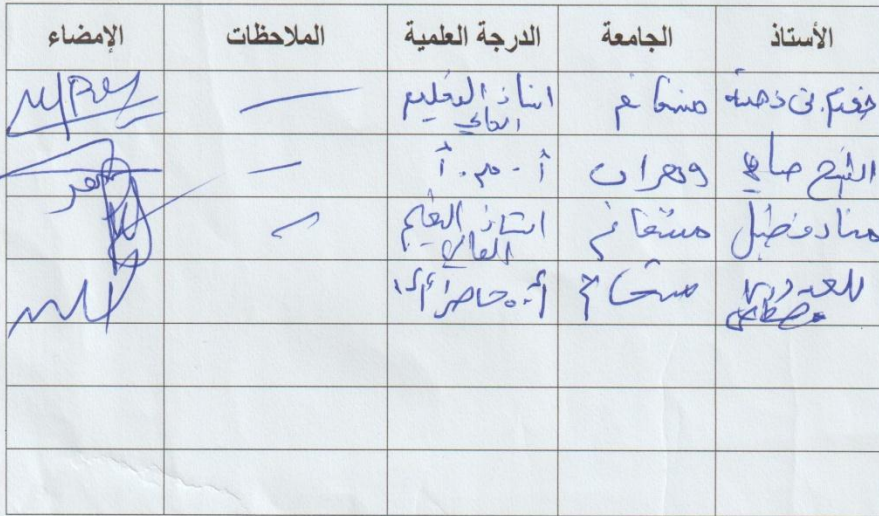 الأستاذ الجامعة الدرجة العلمية الملاحظات الإمضاء
مستغانم استاذ التعليم العالي
الشيخ صالح وهران أ.م.أ
مناد فضيل مستغانم استاذ التعليم العالي
مصطفى مستغانم أ.محاضر أ